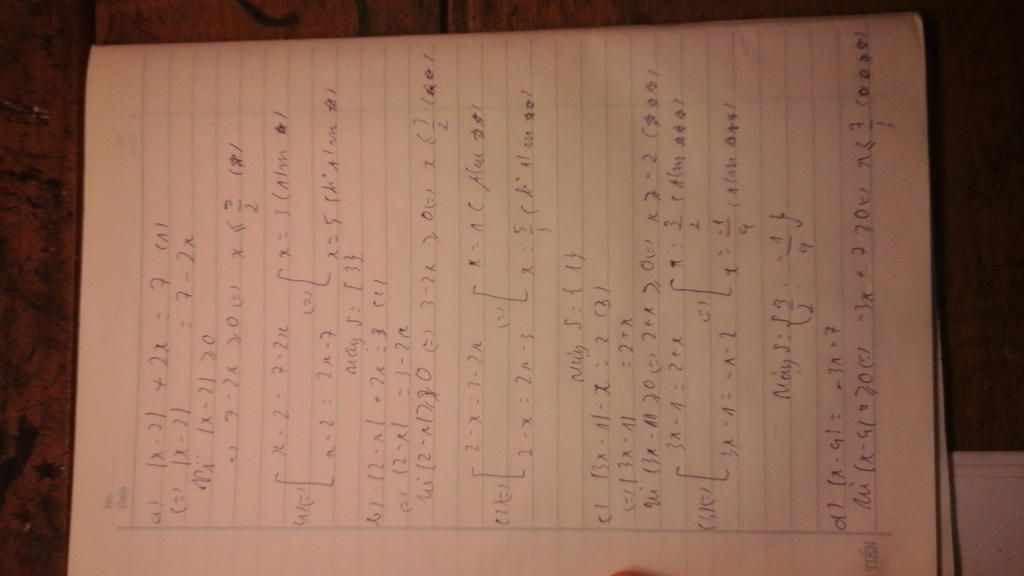 No.
Date
a) |x-2| + 2x = 7 (1)
(=) |x-2| = 7 - 2x
Vì |x-2| ≥ 0
=> 7-2x ≥ 0 (=) x ≤ 7/2 (*)
(1) (=) [ x-2 = 7-2x (=) [ x = 3 (t/m *)
x-2 = 2x-7 x = 5 (k° t/m *)
Vậy S = {3}
b) |2-x| + 2x = 3 (2)
(=) |2-x| = 3-2x
Vì |2-x| ≥ 0 (=) 3-2x ≥ 0 (=) x ≤ 3/2 (**)
(2) (=) [ 2-x = 3-2x (=) [ x = 1 (t/m **)
2-x = 2x-3 x = 5/3 (k° t/m **)
Vậy S = {1}
c) |3x-1| - x = 2 (3)
(=) |3x-1| = 2+x
Vì |3x-1| ≥ 0 (=) 2+x ≥ 0 (=) x ≥ -2 (***)
(3) (=) [ 3x-1 = 2+x (=) [ x = 3/2 (t/m ***)
3x-1 = -x-2 x = -1/4 (t/m ***)
Vậy S = {3/2; -1/4}
d) |x-4| = -3x+7
Vì |x-4| ≥ 0 (=) -3x+7 ≥ 0 (=) x ≤ 7/3 (****)
TIẾN